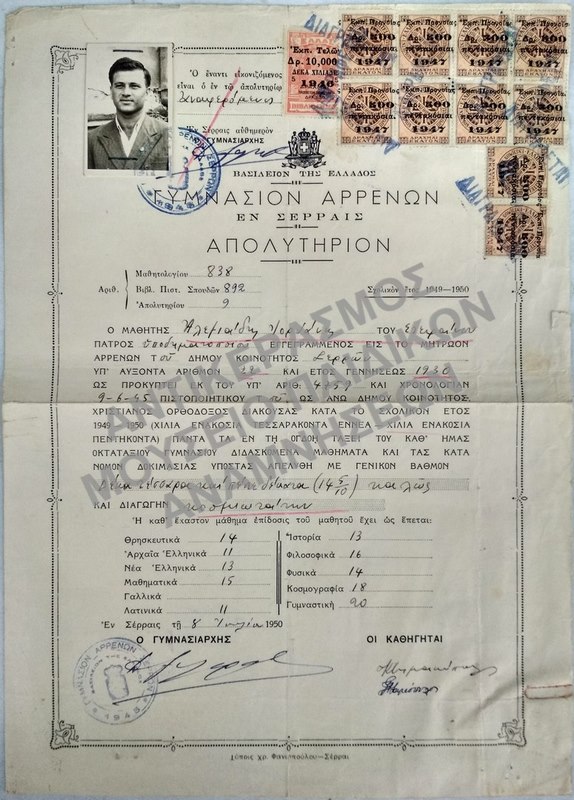 Ὁ ἔναντι εἰκονιζόμενος
εἶναι ὁ ἐν τῷ ἀπολυτηρίῳ
ἀναφερόμενος
Ἐν Σέρραις αὐθημερόν
Ὁ ΓΥΜΝΑΣΙΑΡΧΗΣ
Ἐκπ. Τελῶν
Δρ. 10,000
ΔΕΚΑ ΧΙΛΙΑΔΕΣ
1946
Ἐκπ. Προνοίας
Δρ. 500
πεντακόσιαι
1947
ΒΑΣΙΛΕΙΟΝ ΤΗΣ ΕΛΛΑΔΟΣ
ΓΥΜΝΑΣΙΟΝ ΑΡΡΕΝΩΝ
ΕΝ ΣΕΡΡΑΙΣ
ΑΠΟΛΥΤΗΡΙΟΝ
Μαθητολογίου 838
Ἀριθ. Βιβλ. Πιστ. Σπουδῶν 892 Σχολικὸν ἔτος 1949-1950
Ἀπολυτηρίου 9
Ο ΜΑΘΗΤΗΣ ΤΟΥ
ΠΑΤΡΟΣ ὑποδηματοποιοῦ ΕΓΓΕΓΡΑΜΜΕΝΟΣ ΕΙΣ ΤΟ ΜΗΤΡΩΟΝ
ΑΡΡΕΝΩΝ ΤΟῦ ΔΗΜΟΥ ΚΟΙΝΟΤΗΤΟΣ Σερρῶν
ΥΠ' ΑΥΞΟΝΤΑ ΑΡΙΘΜΟΝ ΚΑΙ ΕΤΟΣ ΓΕΝΝΗΣΕΩΣ 1930
ΩΣ ΠΡΟΚΥΠΤΕΙ ΕΚ ΤΟΥ ΥΠ' ΑΡΙΘ. ΚΑΙ ΧΡΟΝΟΛΟΓΙΑΝ
9-6-45 ΠΙΣΤΟΠΟΙΗΤΙΚΟΥ ΤΟῦ ΩΣ ΑΝΩ ΔΗΜΟΥ ΚΟΙΝΟΤΗΤΟΣ,
ΧΡΙΣΤΙΑΝΟΣ ΟΡΘΟΔΟΞΟΣ ΔΙΑΚΟΥΣΑΣ ΚΑΤΑ ΤΟ ΣΧΟΛΙΚΟΝ ΕΤΟΣ
1949-1950 (ΧΙΛΙΑ ΕΝΑΚΟΣΙΑ ΤΕΣΣΑΡΑΚΟΝΤΑ ΕΝΝΕΑ - ΧΙΛΙΑ ΕΝΑΚΟΣΙΑ
ΠΕΝΤΗΚΟΝΤΑ) ΠΑΝΤΑ ΤΑ ΕΝ ΤΗ ΟΓΔΟΗ ΤΑΞΕΙ ΤΟΥ ΚΑΘ' ΗΜΑΣ
ΟΚΤΑΤΑΞΙΟΥ ΓΥΜΝΑΣΙΟΥ ΔΙΔΑΣΚΟΜΕΝΑ ΜΑΘΗΜΑΤΑ ΚΑΙ ΤΑΣ ΚΑΤΑ
ΝΟΜΟΝ ΔΟΚΙΜΑΣΙΑΣ ΥΠΟΣΤΑΣ ΑΠΕΛΥΘΗ ΜΕ ΓΕΝΙΚΟΝ ΒΑΘΜΟΝ
Δέκα τέσσαρα καὶ πέντε δέκατα (14 5/10) καλῶς
ΚΑΙ ΔΙΑΓΩΓΗΝ κοσμιωτάτην
Ἡ καθ' ἕκαστον μάθημα ἐπίδοσις τοῦ μαθητοῦ ἔχει ὡς ἕπεται:
Θρησκευτικά 14 Ἱστορία 13
Ἀρχαῖα Ἑλληνικά 11 Φιλοσοφικά 16
Νέα Ἑλληνικά 13 Φυσικά 14
Μαθηματικά 15 Κοσμογραφία 18
Γαλλικά Γυμναστική 20
Λατινικά 11
Ἐν Σέρραις τῇ 8 1950
Ο ΓΥΜΝΑΣΙΑΡΧΗΣ ΟΙ ΚΑΘΗΓΗΤΑΙ
ΓΥΜΝΑΣΙΟΝ ΑΡΡΕΝΩΝ ΣΕΡΡΩΝ
1945
Τύποις Χρ. Φανιοπούλου - Σέρραι
ΑΝΤΙΚΕΡΑΣΜΟΣ
ΜΟΥΣΕΙΟ ΠΑΙΔΙΚΩΝ
ΑΝΑΜΝΗΣΕΩΝ